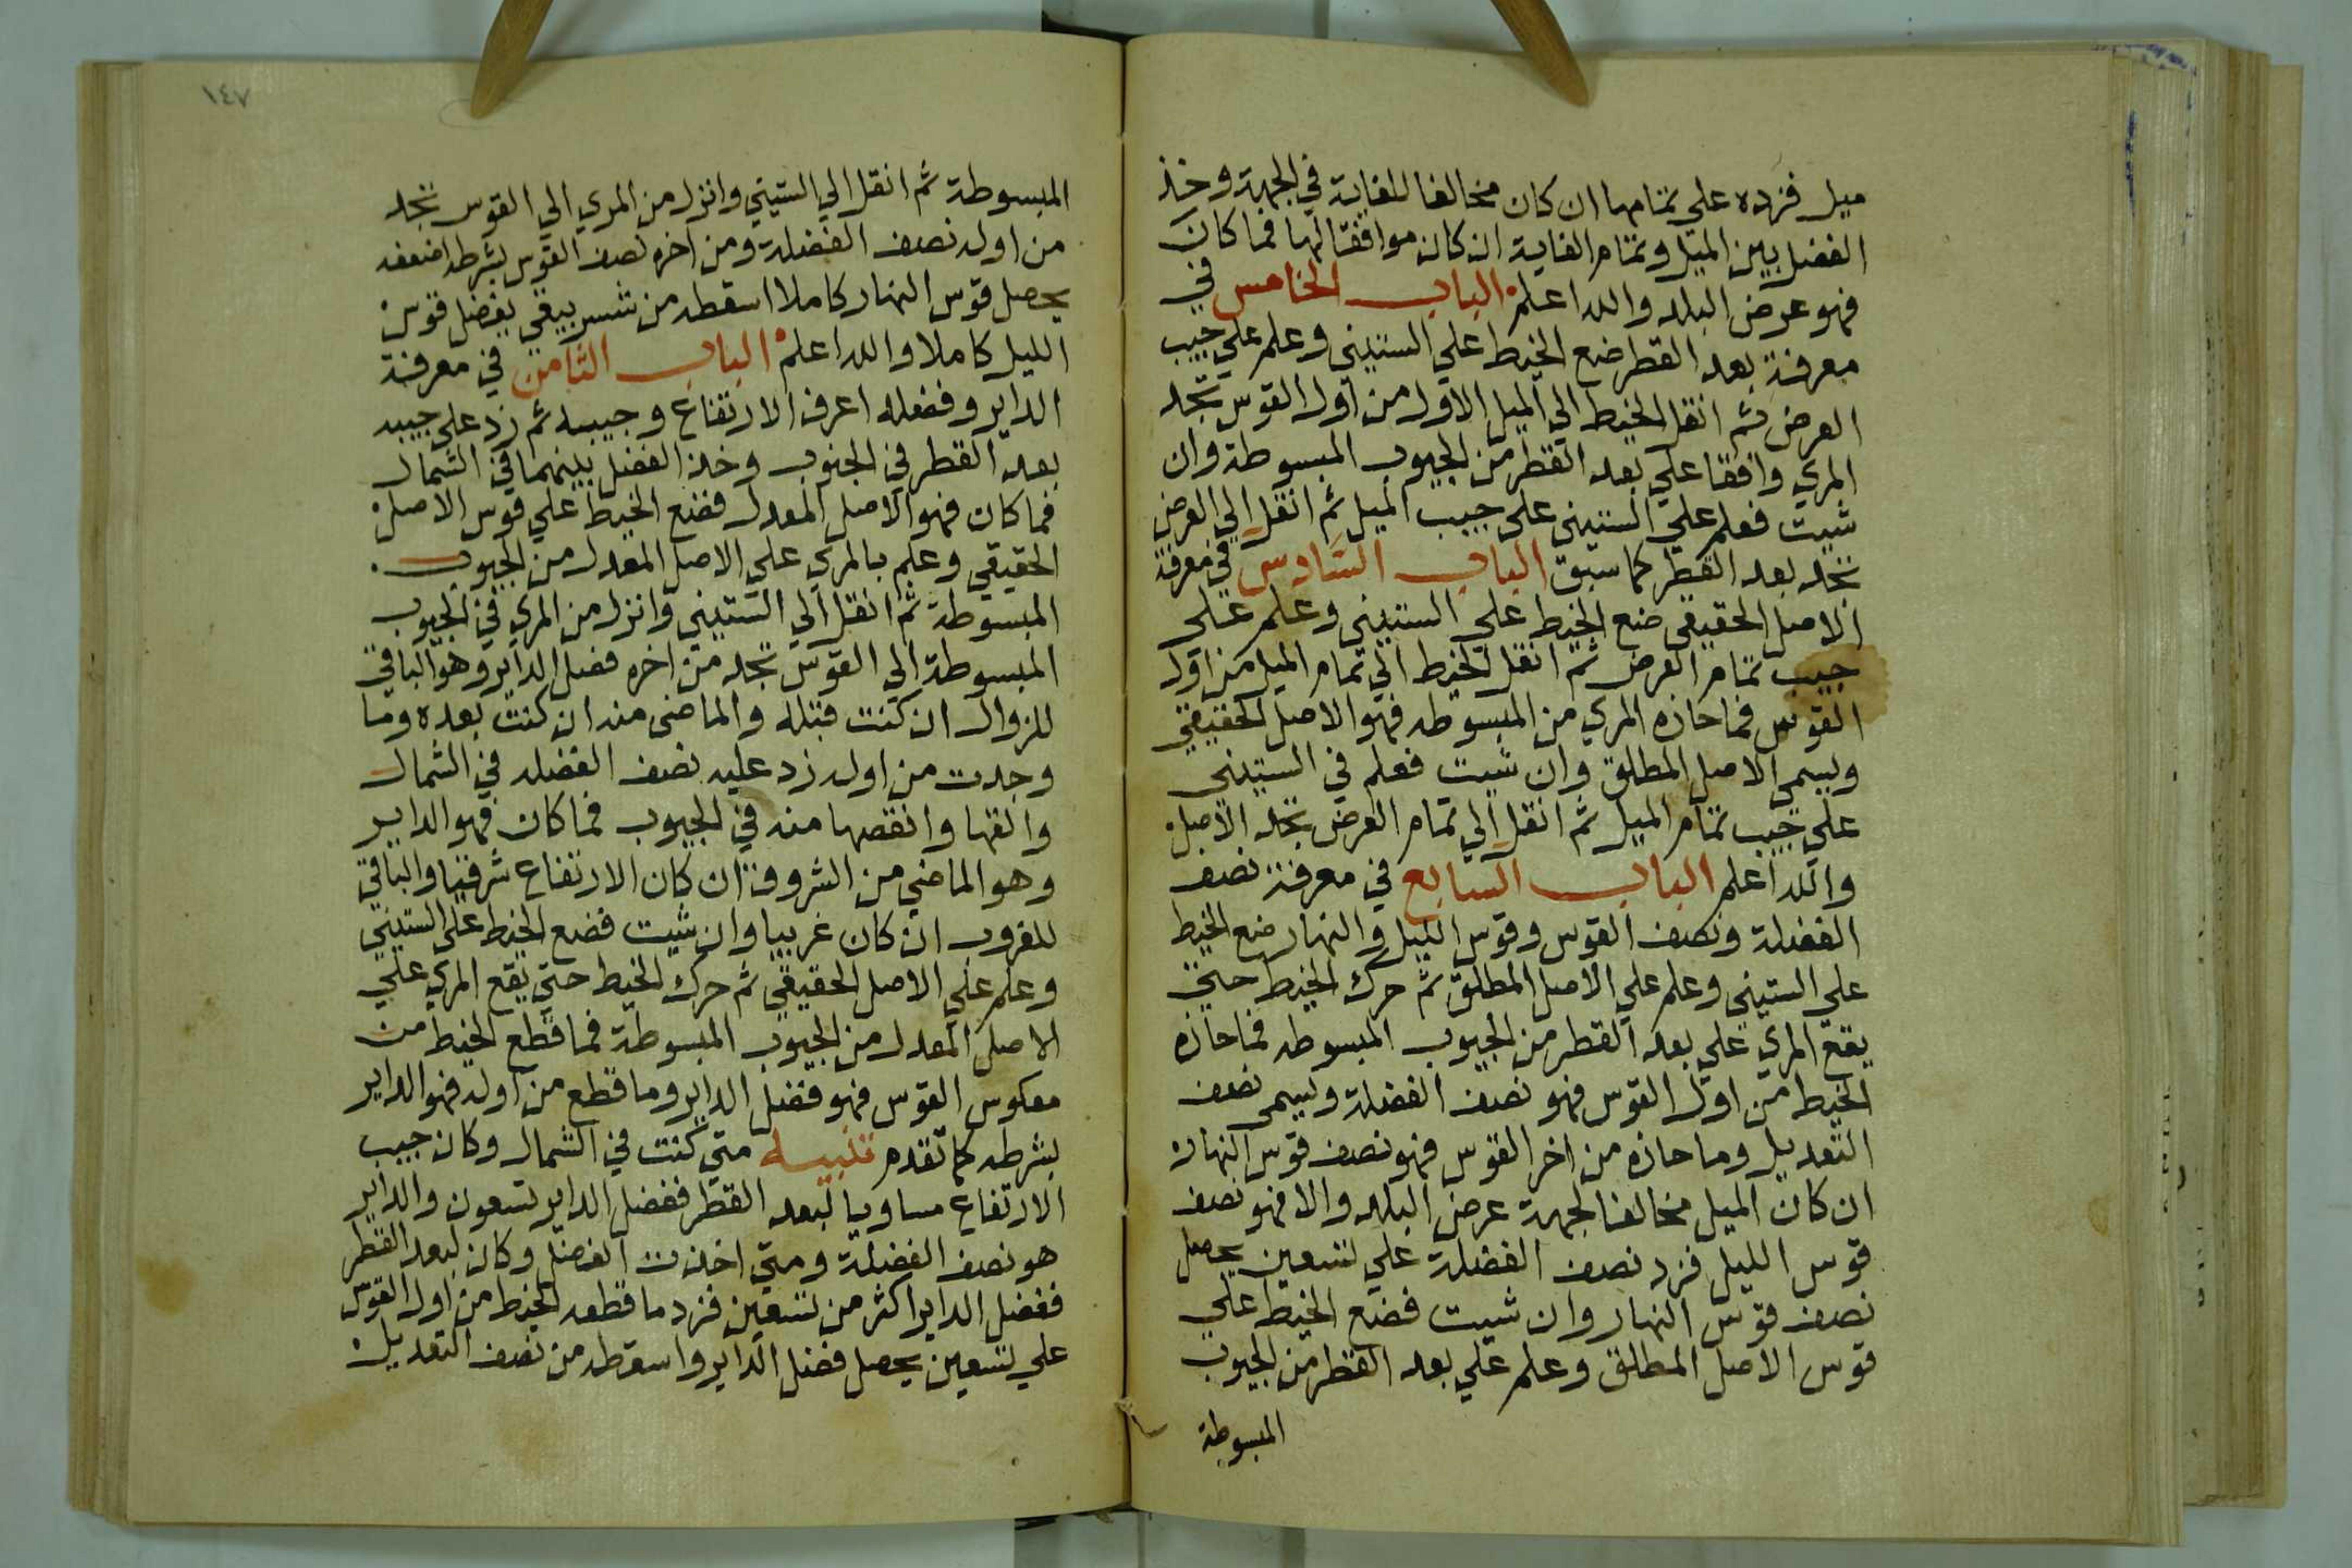 ميل فزده علي تمامها ان كان مخالفا للغاية في الجهة وخذ
الفضل بين الميل وتمام الغاية ان كان موافقا لها فما كان
فهو عرض البلد والله اعلم الباب الخامس في
معرفة بعد القطر ضع الخيط علي الستيني وعلم علي جيب
العرض ثم انقل الخيط الي الميل الاول من اول القوس تجد
المري واقفا علي بعد القطر من الجيوب المبسوطة وان
شيت فعلم علي الستيني علي جيب الميل ثم انقل الي العرض
تجد بعد القطر كما سبق الباب السادس في معرفة
الاصل الحقيقي ضع الخيط علي الستيني وعلم علي
جيب تمام العرض ثم انقل الخيط الي تمام الميل من اول
القوس فما حازه المري من المبسوطه فهو الاصل الحقيقي
ويسمي الاصل المطلق وان شيت فعلم في الستيني
علي جيب تمام الميل ثم انقل الي تمام العرض تجد الاصل
والله اعلم الباب السابع في معرفة نصف
الفضلة ونصف القوس وقوس الليل والنهار ضع الخيط
علي الستيني وعلم علي الاصل المطلق ثم حرك الخيط حتي
يقع المري علي بعد القطر من الجيوب المبسوطه فما حازه
الخيط من اول القوس فهو نصف الفضلة ويسمي نصف
التعديل وما حازه من اخر القوس فهو نصف قوس النهار
ان كان الميل مخالفا لجهة عرض البلد والا فهو نصف
قوس الليل فزد نصف الفضلة علي تسعين يحصل
نصف قوس النهار وان شيت فضع الخيط علي
قوس الاصل المطلق وعلم علي بعد القطر من الجيوب
المبسوطة
١٤٧
المبسوطة ثم انقل الي الستيني وانزل من المري الي القوس تجد
من اوله نصف الفضلة ومن اخره نصف القوس بشرطه اضعفه
يحصل قوس النهار كاملا اسقطه من شس يبقي يفضل قوس
الليل كاملا والله اعلم الباب الثامن في معرفة
الداير وفضله اعرف الارتفاع وجيبه ثم زد علي جيبه
بعد القطر في الجنوب وخذ الفضل بينهما في الشمال
فما كان فهو الاصل المعدل فضع الخيط علي قوس الاصل
الحقيقي وعلم بالمري علي الاصل المعدل من الجيوب
المبسوطة ثم انقل الي الستيني وانزل من المري في الجيوب
المبسوطة الي القوس تجد من اخره فضل الداير وهو الباقي
للزوال ان كنت قبله والماضي منه ان كنت بعده وما
وجدت من اوله زد عليه نصف الفضله في الشمال
والقها وانقصها منه في الجيوب فما كان فهو الداير
وهو الماضي من الشروق ان كان الارتفاع شرقيا والباقي
للغروب ان كان غربيا وان شيت فضع الخيط علي الستيني
وعلم علي الاصل الحقيقي ثم حرك الخيط حتي يقع المري علي
الاصل المعدل من الجيوب المبسوطة فما قطع الخيط من
معكوس القوس فهو فضل الداير وما قطع من اوله فهو الداير
بشرطه كما تقدم تنبيه متي كنت في الشمال وكان جيب
الارتفاع مساويا لبعد القطر ففضل الداير تسعون والداير
هو نصف الفضلة ومتي اخذت الفضل وكان لبعد القطر
ففضل الداير اكثر من تسعين فزد ما قطعه الخيط من اول القوس
علي تسعين يحصل فضل الداير واسقطه من نصف التعديل